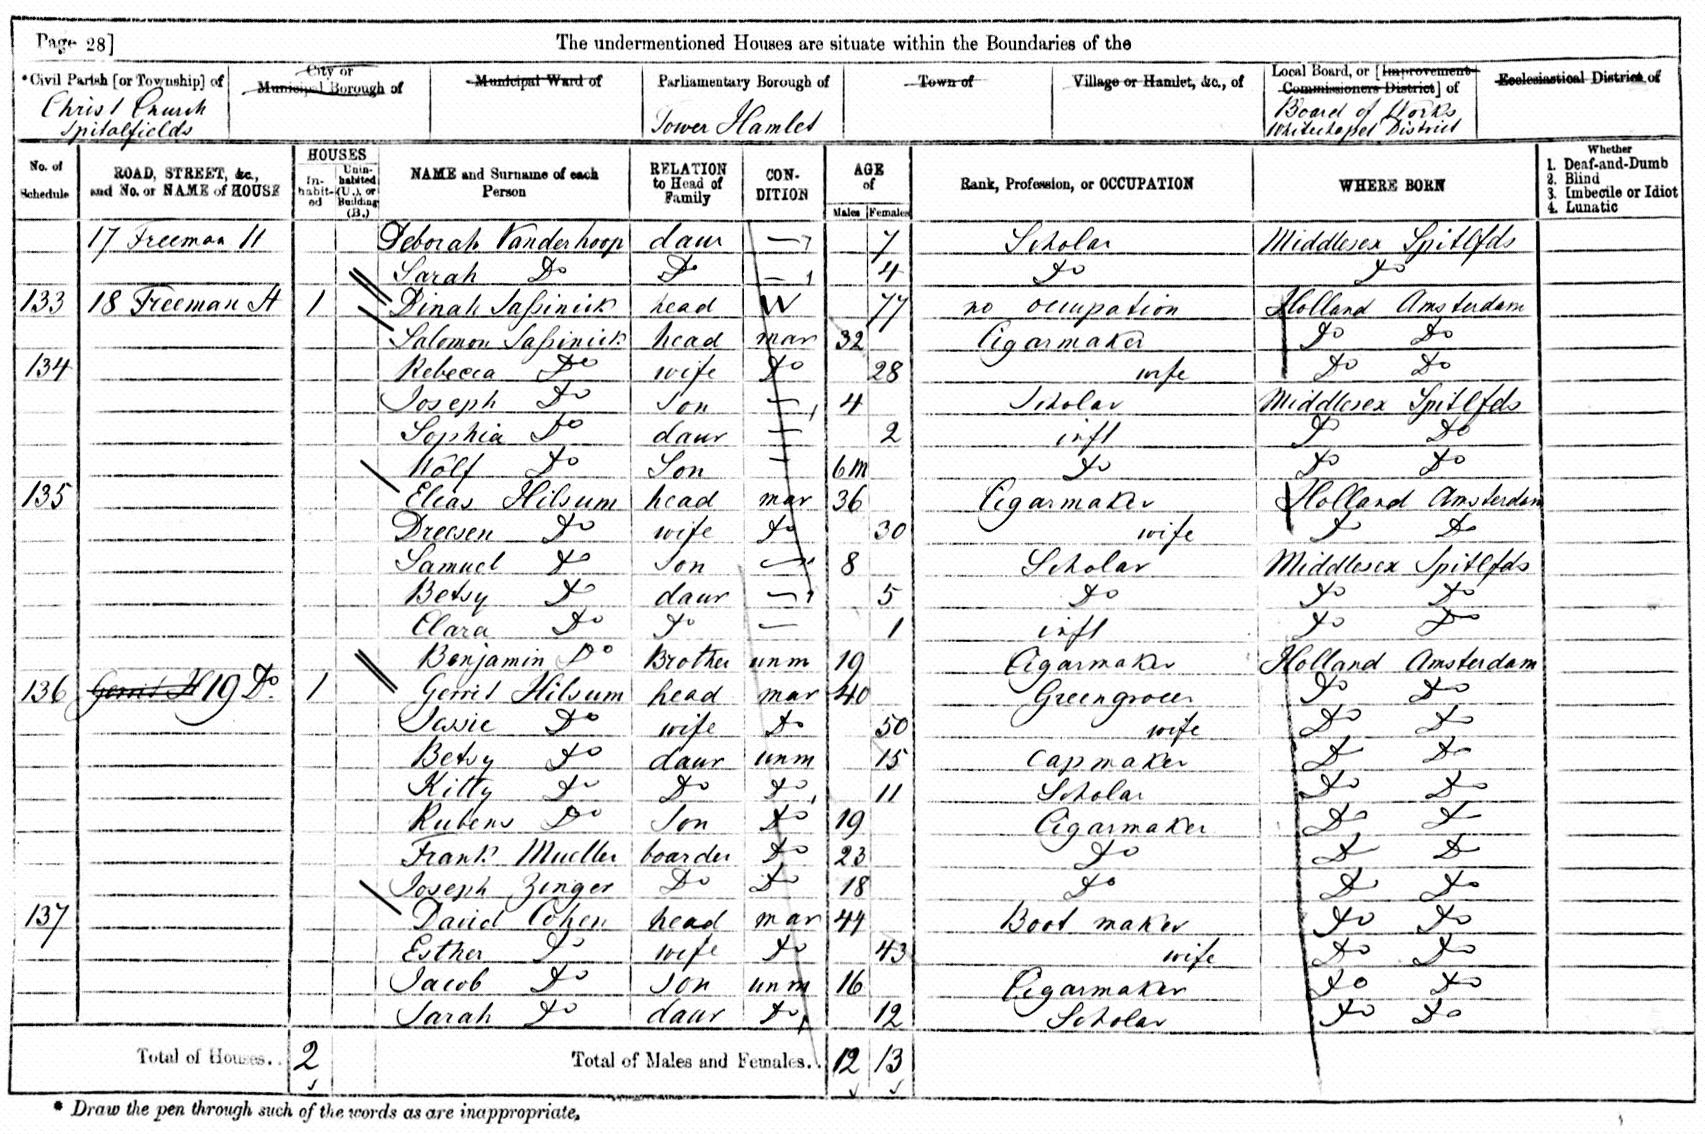 Page 28]
The undermentioned Houses are situate within the Boundaries of the
*Civil Parish [or Township] of
City or Municipal Borough of
Municipal Ward of
Parliamentary Borough of
Town of
Village or Hamlet, &c., of
Local Board, or [Improvement Commissioners District] of
Ecclesiastical District of
Christ Church
Spitalfields
Tower Hamlet
Board of Works
Whitechapel District
No. of Schedule
ROAD, STREET, &c., and No. or NAME of HOUSE
HOUSES
In-habit-ed
Unin-habited (U.), or Building (B.)
NAME and Surname of each Person
RELATION to Head of Family
CON-DITION
AGE of
Males
Females
Rank, Profession, or OCCUPATION
WHERE BORN
Whether
1. Deaf-and-Dumb
2. Blind
3. Imbecile or Idiot
4. Lunatic
17 Freeman St Deborah Vanderhoop daur — 7 Scholar Middlesex Spitlfds
Sarah Do Do — 4 Do Do
133 18 Freeman St 1 Dinah Sassinick head W 77 no occupation Holland Amsterdam
Salomon Sassinick head mar 32 Cigarmaker Do Do
134 Rebecca Do wife Do 28 wife Do Do
Joseph Do Son — 4 Scholar Middlesex Spitlfds
Sophia Do daur — 2 inft Do Do
Wolf Do Son — 6m Do Do Do
135 Elias Hilsum head mar 36 Cigarmaker Holland Amsterdam
Dreesen Do wife Do 30 wife Do Do
Samuel Do Son — 8 Scholar Middlesex Spitlfds
Betsy Do daur — 5 Do Do Do
Clara Do Do — 1 inft Do Do
Benjamin Do Brother unm 19 Cigarmaker Holland Amsterdam
136 Gerrit St 19 Do. 1 Gerrit Hilsum head mar 40 Greengrocer Do Do
Jessie Do wife Do 50 wife Do Do
Betsy Do daur unm 15 Capmaker Do Do
Kitty Do Do Do 11 Scholar Do Do
Rubens Do Son Do 19 Cigarmaker Do Do
Frank Mueller boarder Do 23 Do Do Do
Joseph Zinger Do Do 18 Do Do Do
137 David Cohen head mar 44 Boot maker Do Do
Esther Do wife Do 43 wife Do Do
Jacob Do Son unm 16 Cigarmaker Do Do
Sarah Do daur Do 12 Scholar Do Do
Total of Houses.. 2
Total of Males and Females.. 12 13
* Draw the pen through such of the words as are inappropriate,